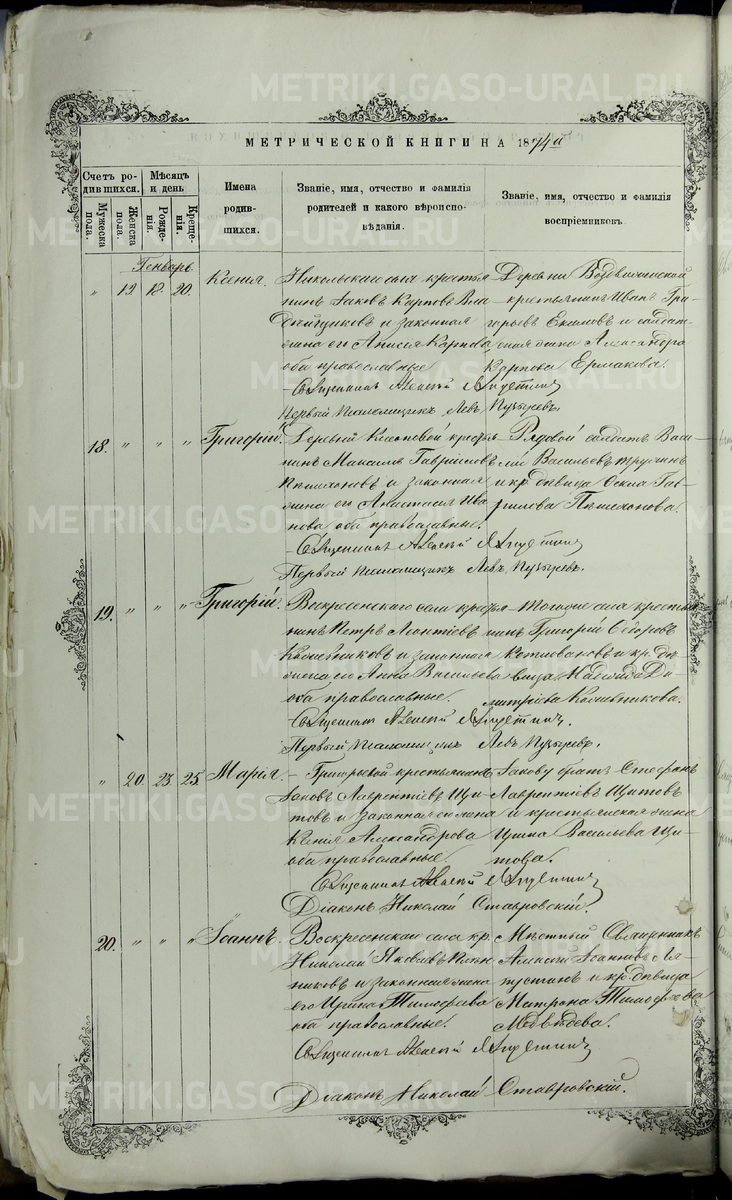 METRIKI.GASO-URAL.RU METRIKI.GASO-URAL.RU
МЕТРИЧЕСКОЙ КНИГИ НА 1874й
Счетъ родившихся.
Мужеска пола.
Женска пола.
Мѣсяцъ и день
Рожденія.
Крещенія.
Имена родившихся.
Званіе, имя, отчество и фамилія родителей и какого вѣроисповѣданія.
Званіе, имя, отчество и фамилія воспріемниковъ.
Генварь
" 19. 18. 20. Ксенія.
Никольскаго села крестья
нинъ Іаковъ Карповъ
и законная
жена его Анисія Карпова
оба православные
Деревни
крестьянинъ Иванъ Гри
горьевъ и солдат
ская жена Александра
Карпова Ермакова.
Священникъ Алексій
Первый Псаломщикъ Левъ Пузыревъ.
18. " " " Григорій.
Деревни крестья
нинъ Максимъ Гавриловъ
и законная
жена его Анастасія Ива
нова оба православные.
Рядовой солдатъ Васи
лій Васильевъ
и кр. дѣвица Гав
рилова
Священникъ Алексій
Первый Псаломщикъ Левъ Пузыревъ.
19. " " " Григорій.
Воскресенскаго села кресть
нинъ Петръ Леонтіевъ
Кожевниковъ и законная
жена его Анна Васильева
оба православные.
Тогоже села крестья
нинъ Григорій Ѳедоровъ
и кр. дѣ
вица Надежда Ди
митріева Кожевникова.
Священникъ Алексій
Первый Псаломщикъ Левъ Пузыревъ.
" 20. 23. 25. Марія.
крестьянинъ
Іаковъ Лаврентіевъ Щи
товъ и законная жена
Ксенія Александрова
оба православные
Іакову братъ Стефанъ
Лаврентіевъ Щитовъ
и крестьянская жена
Васильева Щи
това.
Священникъ Алексій
Діаконъ Николай Ставровскій.
20. " " " Іоаннъ.
Воскресенскаго села кр.
Николай Яковлевъ
и законная жена
его Ирина Тимофеева
оба православные.
Мѣстный Священникъ
Алексій Іоанновъ
и кр. дѣвица
Матрона Тимофеева
Медвѣдева.
Священникъ Алексій
Діаконъ Николай Ставровскій.